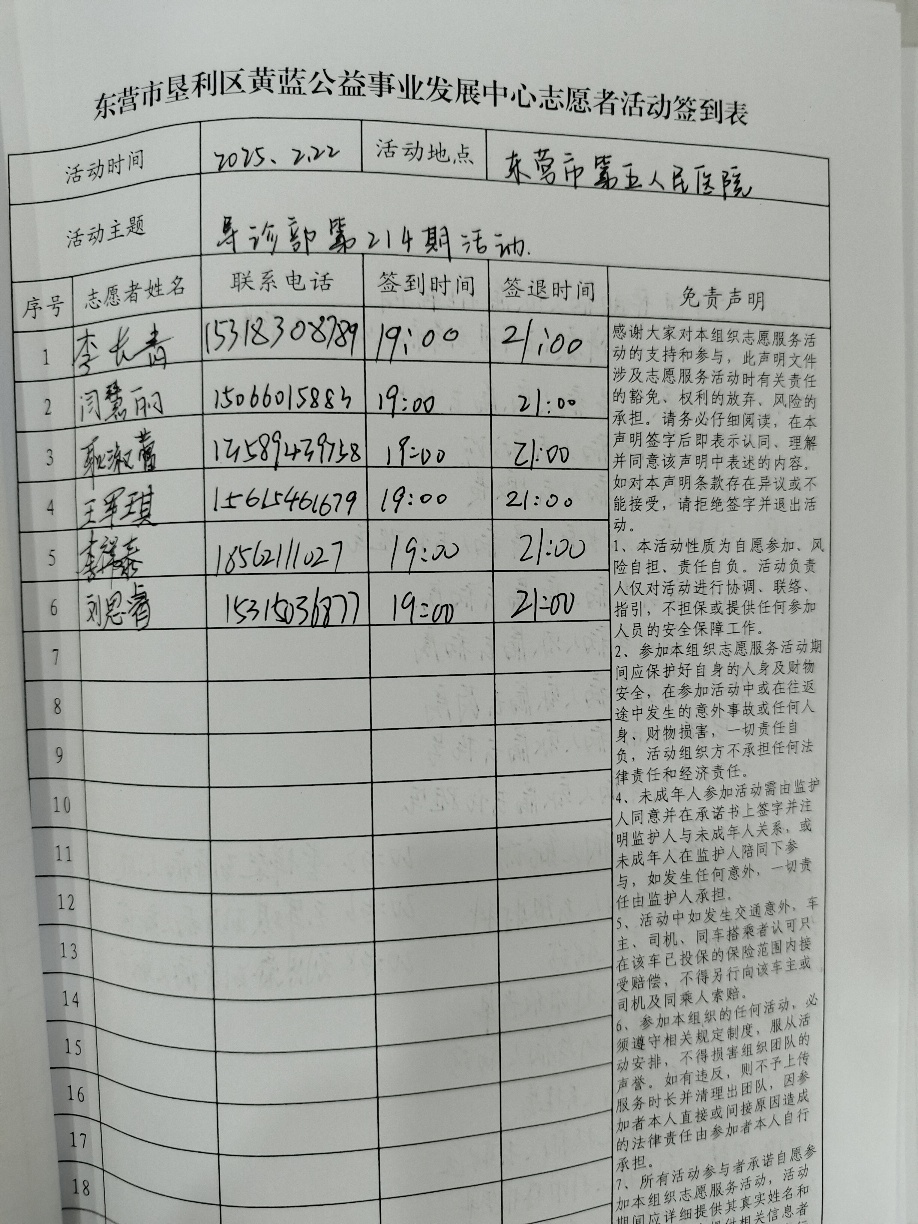 东营市垦利区黄蓝公益事业发展中心志愿者活动签到表
活动时间 2025.2.22 活动地点 东营市第五人民医院
活动主题 导诊部第214期活动.
序号 志愿者姓名 联系电话 签到时间 签退时间 免责声明
1 李长青 15318308789 19:00 21:00
2 闫慧丽 15066015883 19:00 21:00
3 19:00 21:00
4 王军琪 15615461679 19:00 21:00
5 18562111027 19:00 21:00
6 刘思睿 15315036877 19:00 21:00
7
8
9
10
11
12
13
14
15
16
17
18
感谢大家对本组织志愿服务活
动的支持和参与，此声明文件
涉及志愿服务活动时有关责任
的豁免、权利的放弃、风险的
承担。请务必仔细阅读，在本
声明签字后即表示认同、理解
并同意该声明中表述的内容。
如对本声明条款存在异议或不
能接受，请拒绝签字并退出活
动。
1、本活动性质为自愿参加、风
险自担、责任自负。活动负责
人仅对活动进行协调、联络、
指引，不担保或提供任何参加
人员的安全保障工作。
2、参加本组织志愿服务活动期
间应保护好自身的人身及财物
安全，在参加活动中或在往返
途中发生的意外事故或任何人
身、财物损害，一切责任自
负，活动组织方不承担任何法
律责任和经济责任。
4、未成年人参加活动需由监护
人同意并在承诺书上签字并注
明监护人与未成年人关系，或
未成年人在监护人陪同下参
与，如发生任何意外，一切责
任由监护人承担。
5、活动中如发生交通意外，车
主、司机、同车搭乘者认可只
在该车已投保的保险范围内接
受赔偿，不得另行向该车主或
司机及同乘人索赔。
6、参加本组织的任何活动，必
须遵守相关规定制度，服从活
动安排，不得损害组织团队的
声誉。如有违反，则不予上传
服务时长并清理出团队，因参
加者本人直接或间接原因造成
的法律责任由参加者本人自行
承担。
7、所有活动参与者承诺自愿参
加本组织志愿服务活动，活动
期间应详细提供其真实姓名和